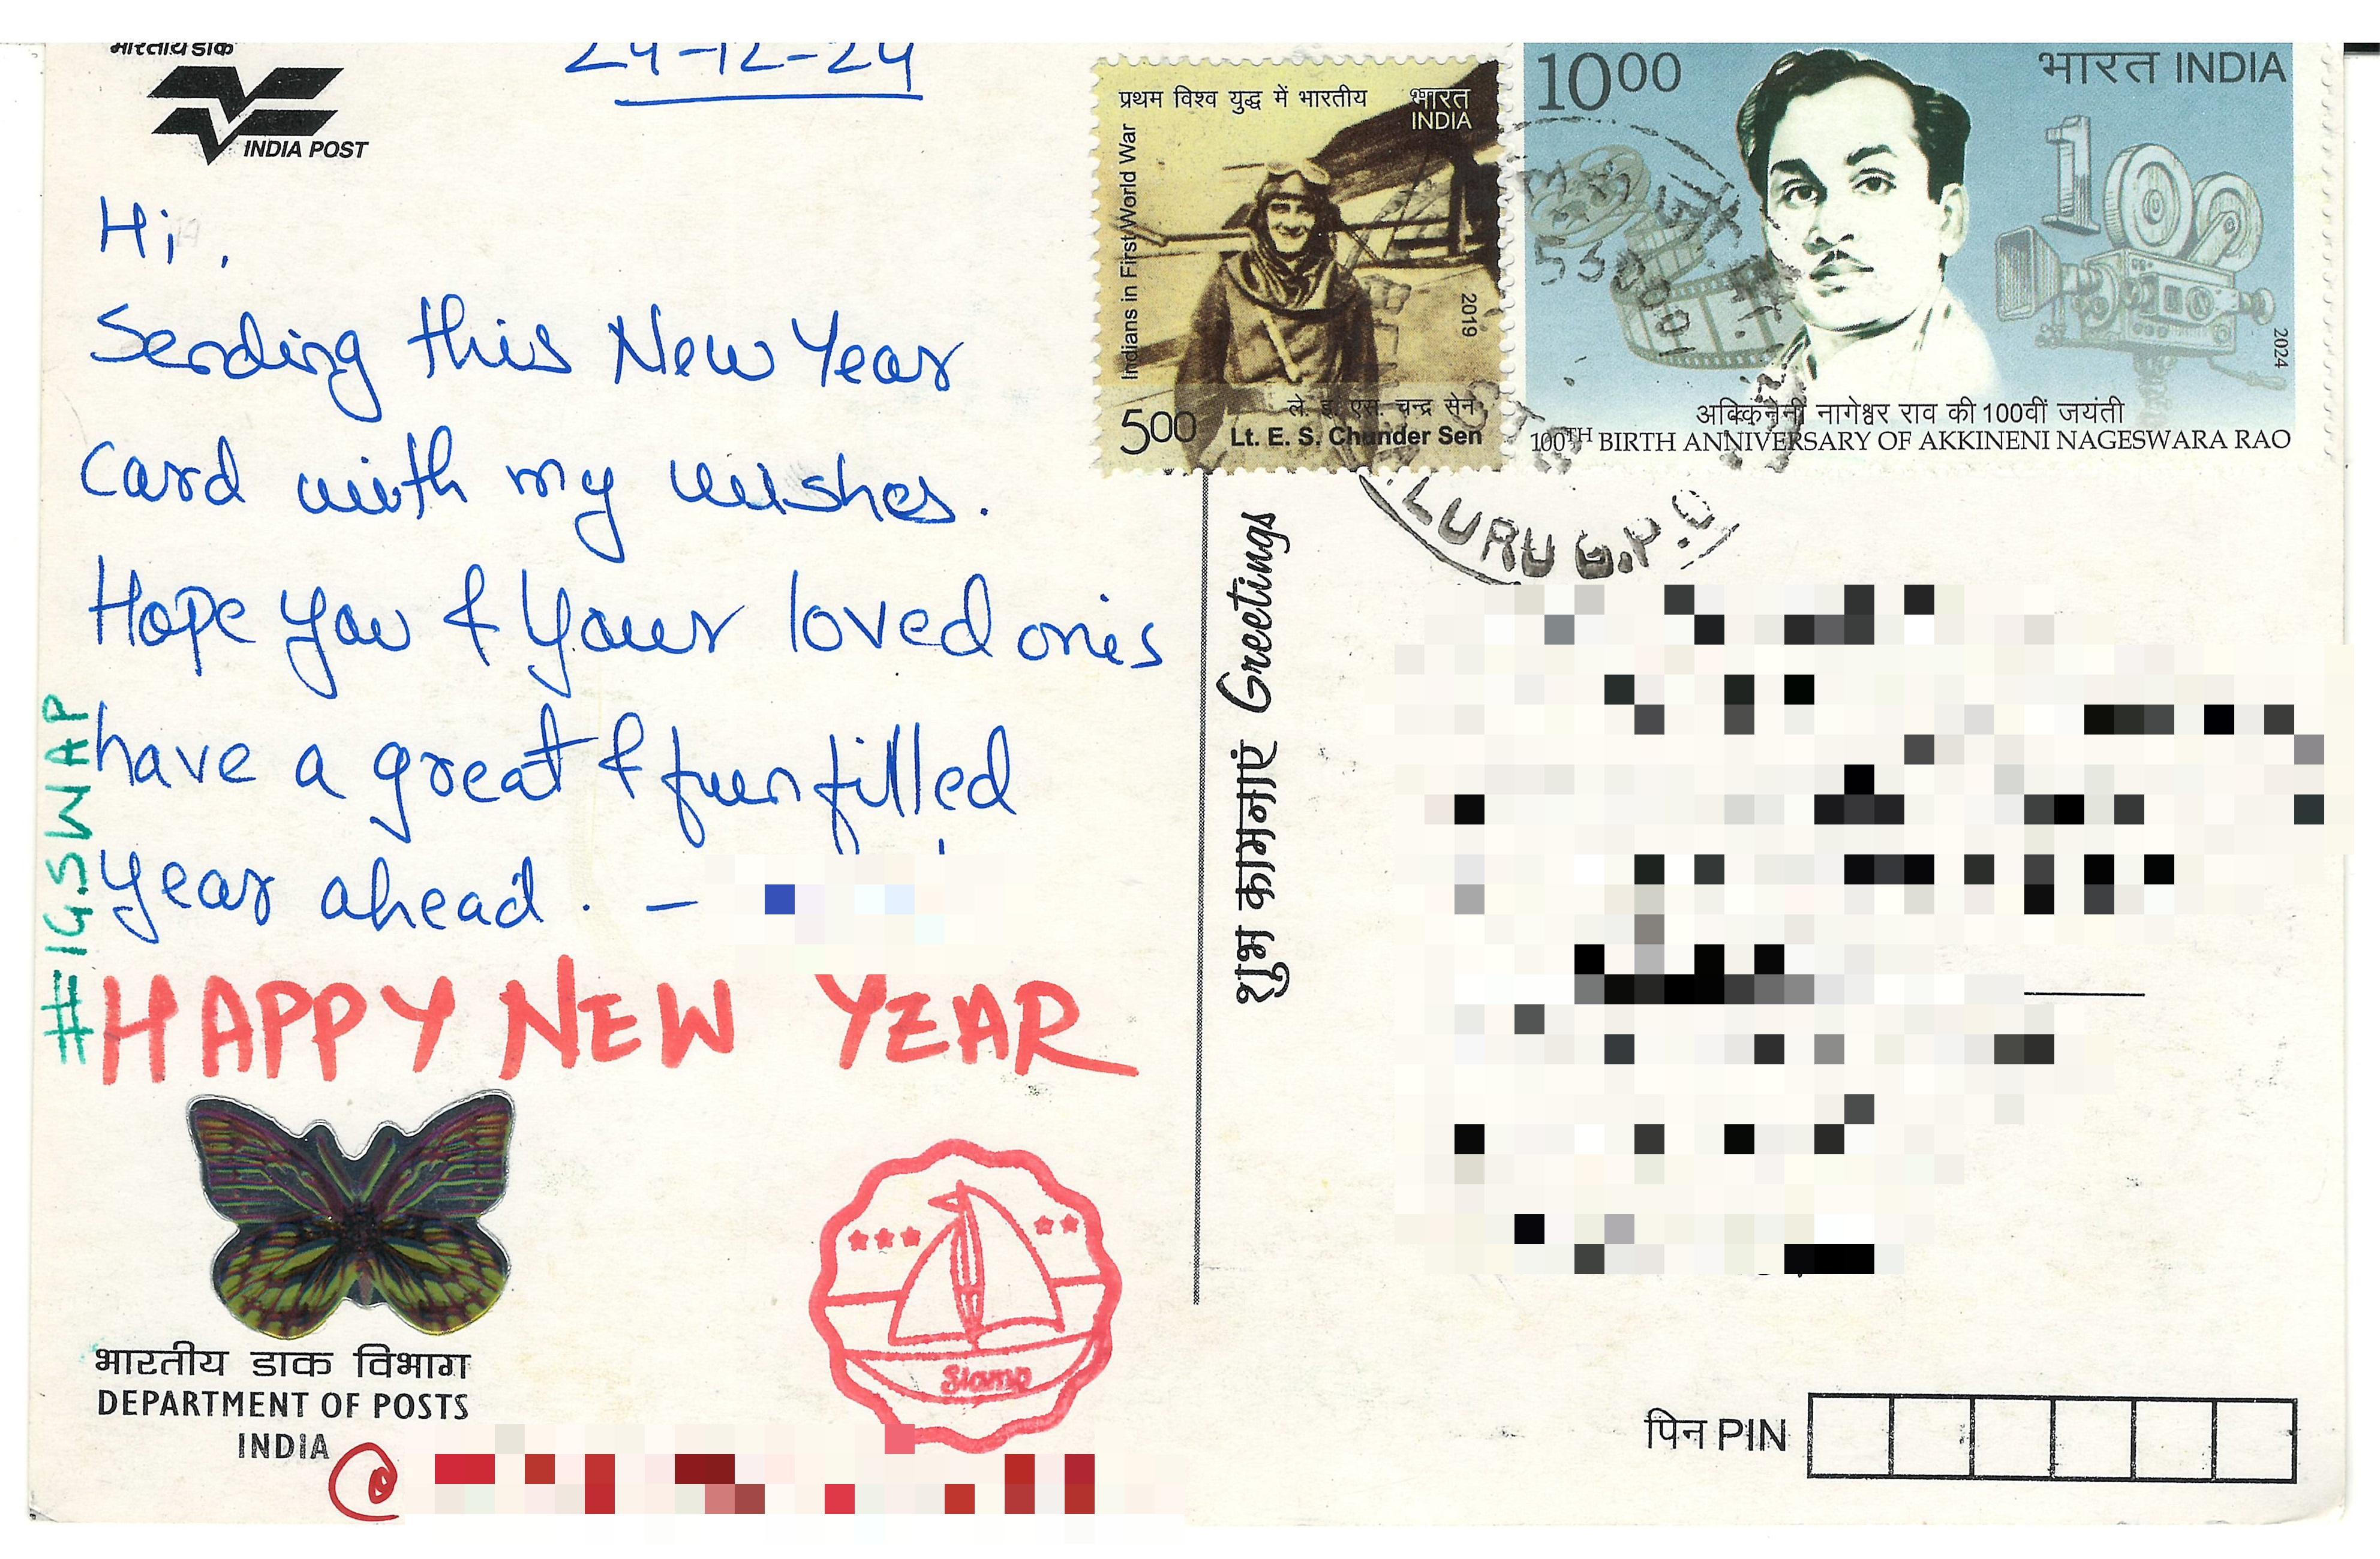 भारतीय डाक
INDIA POST
24-12-24
Hi,
Sending this New Year
Card with my wishes.
Hope you & your loved ones
have a great & fun filled
year ahead. -
#IGSWAP
HAPPY NEW YEAR
भारतीय डाक विभाग
DEPARTMENT OF POSTS
INDIA
@
Stamp
प्रथम विश्व युद्ध में भारतीय
भारत
INDIA
Indians in First World War
2019
ले. इ. एस. चन्द्र सेन
500
Lt. E. S. Chunder Sen
1000
भारत INDIA
2024
अक्किनेनी नागेश्वर राव की 100वीं जयंती
100TH BIRTH ANNIVERSARY OF AKKINENI NAGESWARA RAO
LURU G.P.O
शुभ कामनाएं Greetings
पिन PIN